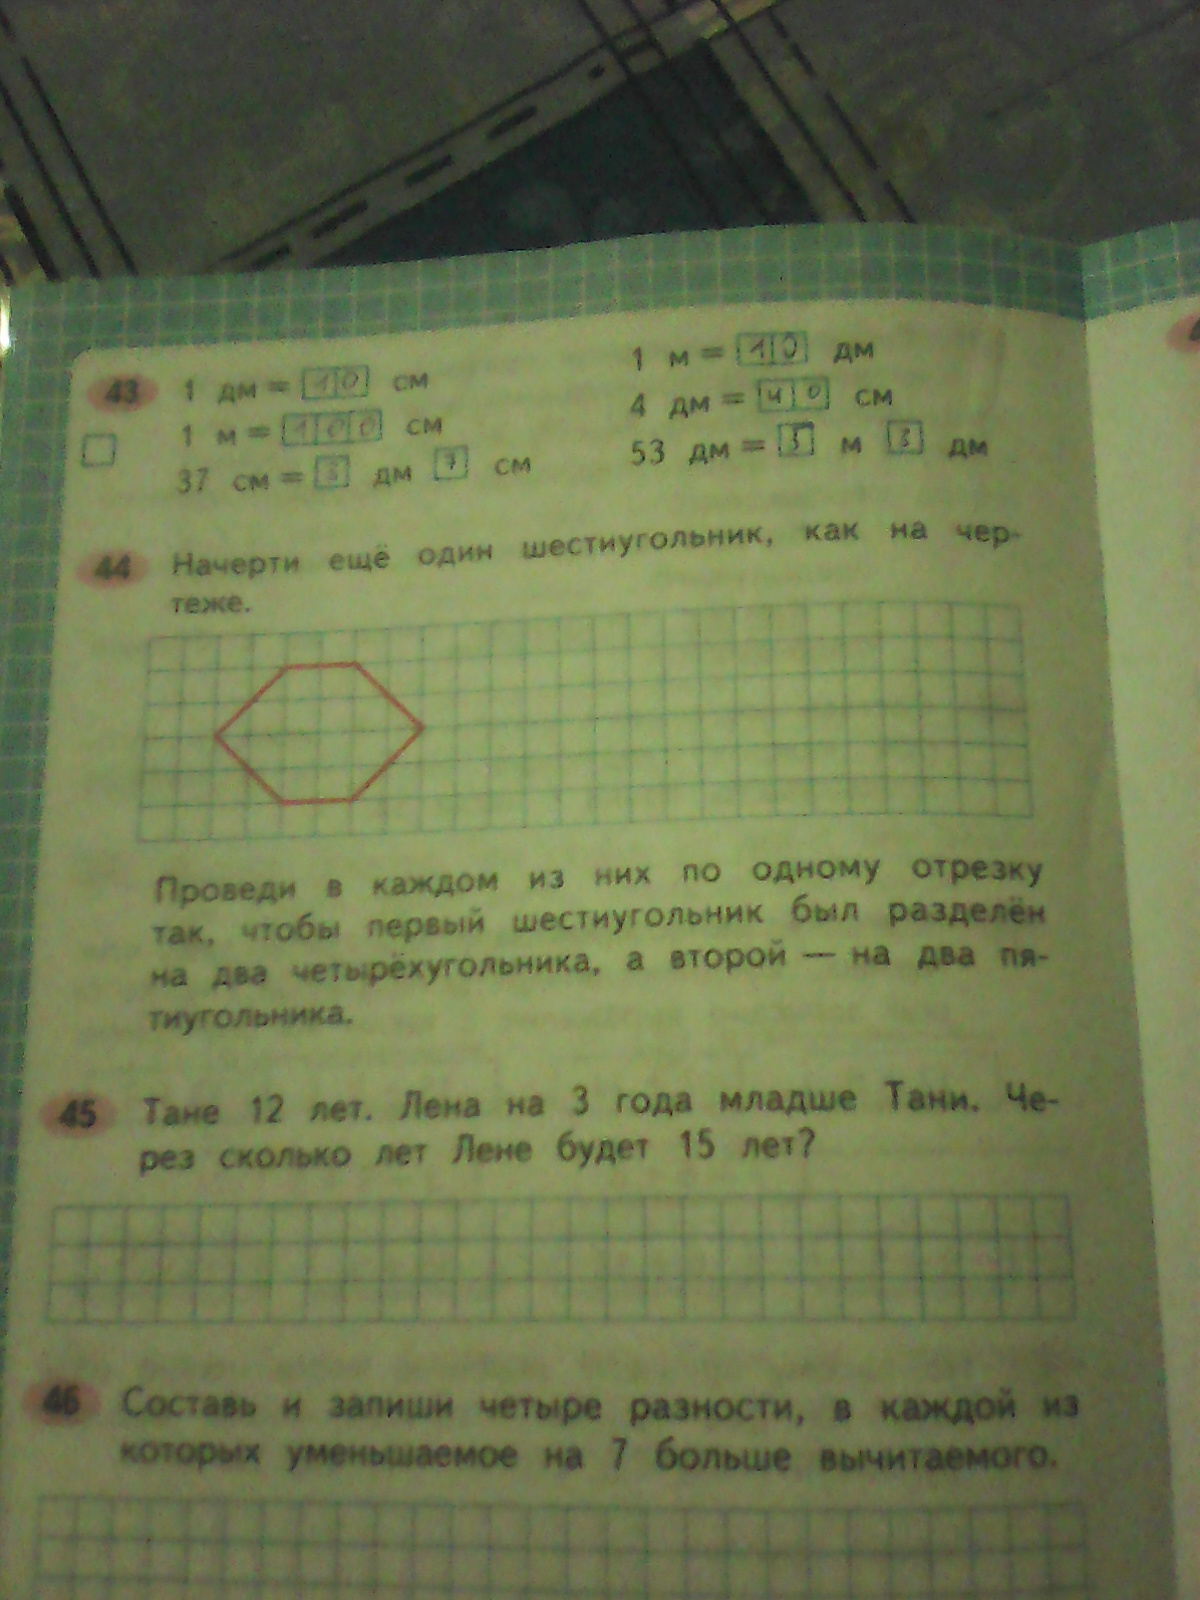 43 1 дм = 10 см 1 м = 10 дм
1 м = 100 см 4 дм = 40 см
37 см = 3 дм 7 см 53 дм = 5 м 3 дм
44 Начерти ещё один шестиугольник, как на чер-
теже.
Проведи в каждом из них по одному отрезку
так, чтобы первый шестиугольник был разделён
на два четырёхугольника, а второй — на два пя-
тиугольника.
45 Тане 12 лет. Лена на 3 года младше Тани. Че-
рез сколько лет Лене будет 15 лет?
46 Составь и запиши четыре разности, в каждой из
которых уменьшаемое на 7 больше вычитаемого.